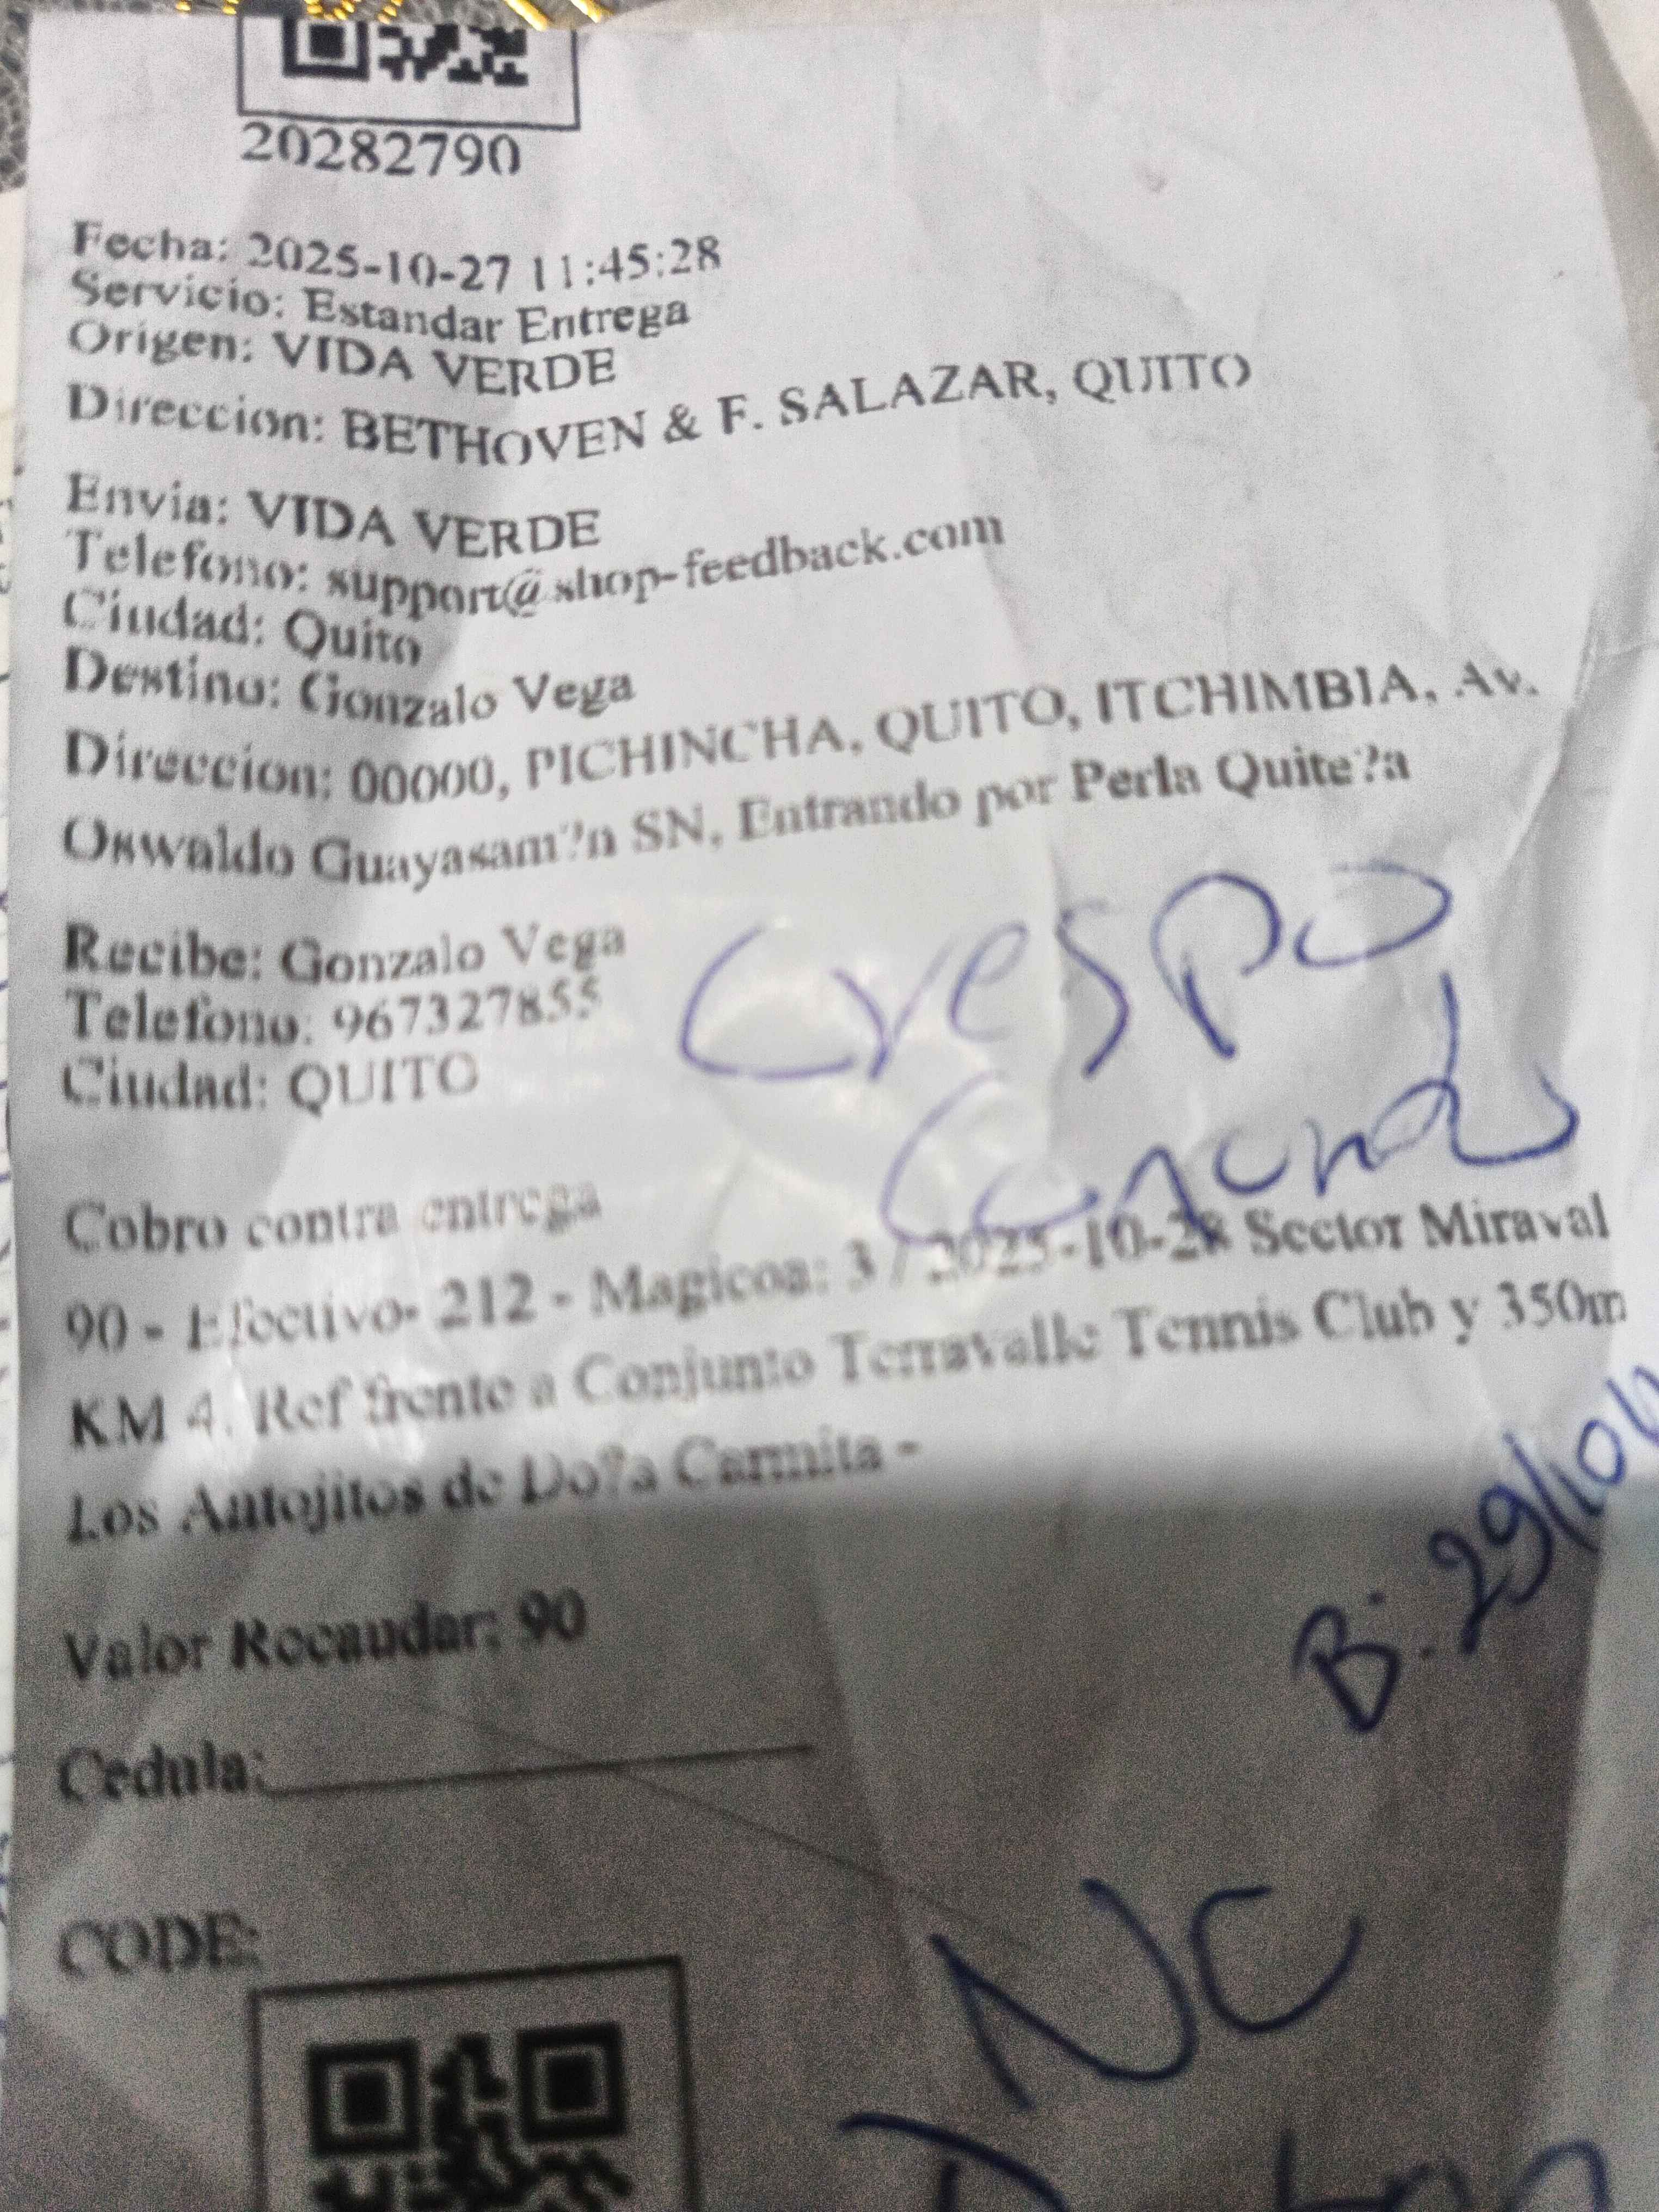 20282790
Fecha: 2025-10-27 11:45:28
Servicio: Estandar Entrega
Origen: VIDA VERDE
Direccion: BETHOVEN & F. SALAZAR, QUITO
Envia: VIDA VERDE
Telefono: support@shop-feedback.com
Ciudad: Quito
Destino: Gonzalo Vega
Direccion: 00000, PICHINCHA, QUITO, ITCHIMBIA, Av.
Oswaldo Guayasam?n SN, Entrando por Perla Quite?a
Recibe: Gonzalo Vega
Telefono: 967327855
Ciudad: QUITO
Crespo
Cobro contra entrega
90 - Efectivo- 212 - Magicoa: 3 / 2025-10-28 Sector Miraval
KM 4. Ref frente a Conjunto Terravalle Tennis Club y 350m
Los Antojitos de Do?a Carmita -
B: 29/10
Valor Recaudar: 90
Cedula:
CODE:
NC